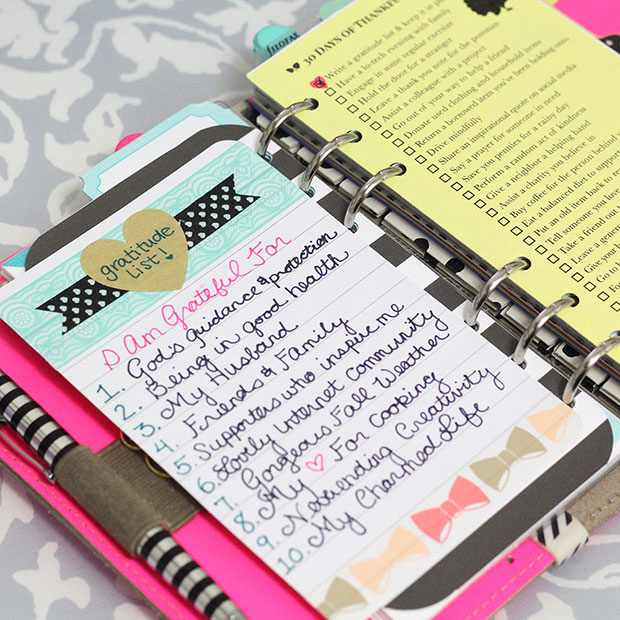 filofax
gratitude
list!
I Am Grateful For
1. God's guidance & protection
2. Being in good health
3. My Husband
4. Friends & Family
5. Supporters who inspire me
6. Lovely Internet Community
7. Gorgeous Fall Weather
8. My ♡ For Cooking
9. Neverending Creativity
10. My Charmed Life
30 DAYS OF THANKFU
Write a gratitude list & keep it in
Have a hi-tech evening with family
Engage in some regular exercise
Hold the door for a stranger
Leave a thank you note for the postman
Assist a colleague with a project
Go out of your way to help a friend
Donate used clothing and household items
Return a borrowed item you've been holding onto
Drive mindfully
Share an inspirational quote on social media
Say a prayer for someone in need
Save you pennies for a rainy day
Perform a random act of kindness
Give a neighbor a helping hand
Assist a charity you believe in
Buy coffee for the person behind
Eat a balanced diet to support
Put an old item back to
Tell someone you
Take a friend out
Leave a
Give your
Go